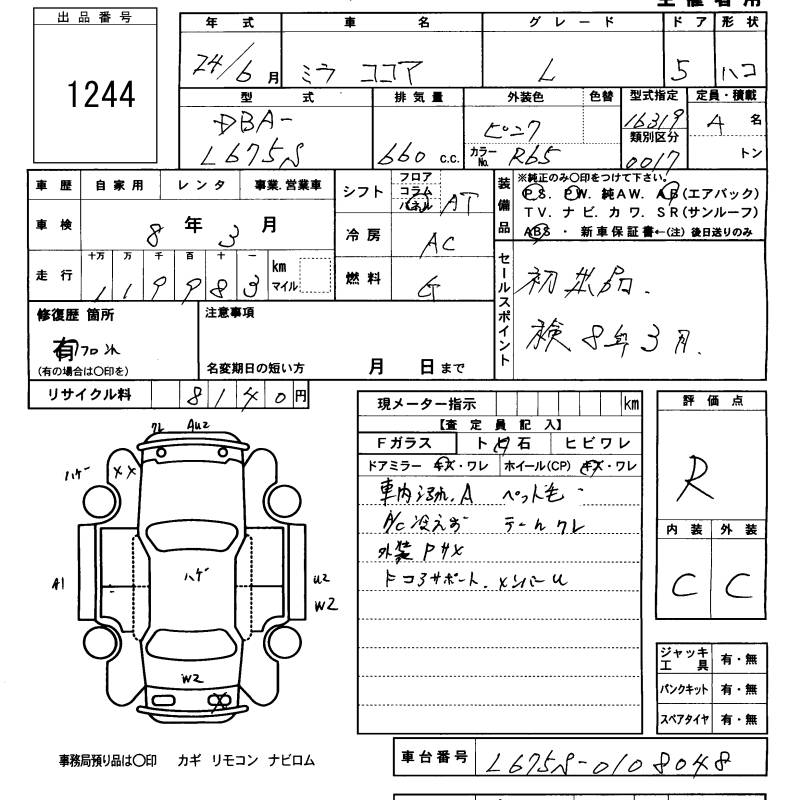 出品番号
1244
年式 車名 グレード ドア 形状
24/6月 ミラ ココア L 5 ハコ
型式 排気量 外装色 色替 型式指定 定員・積載
DBA-
L675S 660 c.c. ピンク 16319 4名
カラーNo. R65 類別区分
0017 トン
車歴 自家用 レンタ 事業.営業車
車検 8年3月
走行 十万 万 千 百 十 一
119983 km マイル
シフト フロア コラム パネル AT
冷房 AC
燃料 G
装備品
※純正のみ〇印をつけて下さい。
PS. PW. 純AW. AB(エアバック)
TV. ナビ. カワ. SR(サンルーフ)
ABS ・ 新車保証書←(注) 後日送りのみ
セールスポイント
初出品.
検8年3月.
修復歴 箇所
有
(有の場合は〇印を)
注意事項
名変期日の短い方 月 日まで
リサイクル料 8140円
現メーター指示 km
【査定員記入】
Fガラス トビ石 ヒビワレ
ドアミラー キズ・ワレ ホイール(CP) キズ・ワレ
車内 A ペット毛
A/C冷えず テールワレ
外装 P サメ
コアサポート. メンバーU
評価点
R
内装 外装
C C
ワレ AU2
ハゲ XX
ハゲ
A1
U2
W2
W2
X
ジャッキ工具 有・無
パンクキット 有・無
スペアタイヤ 有・無
事務局預り品は〇印 カギ リモコン ナビロム
車台番号 L675S-0108048